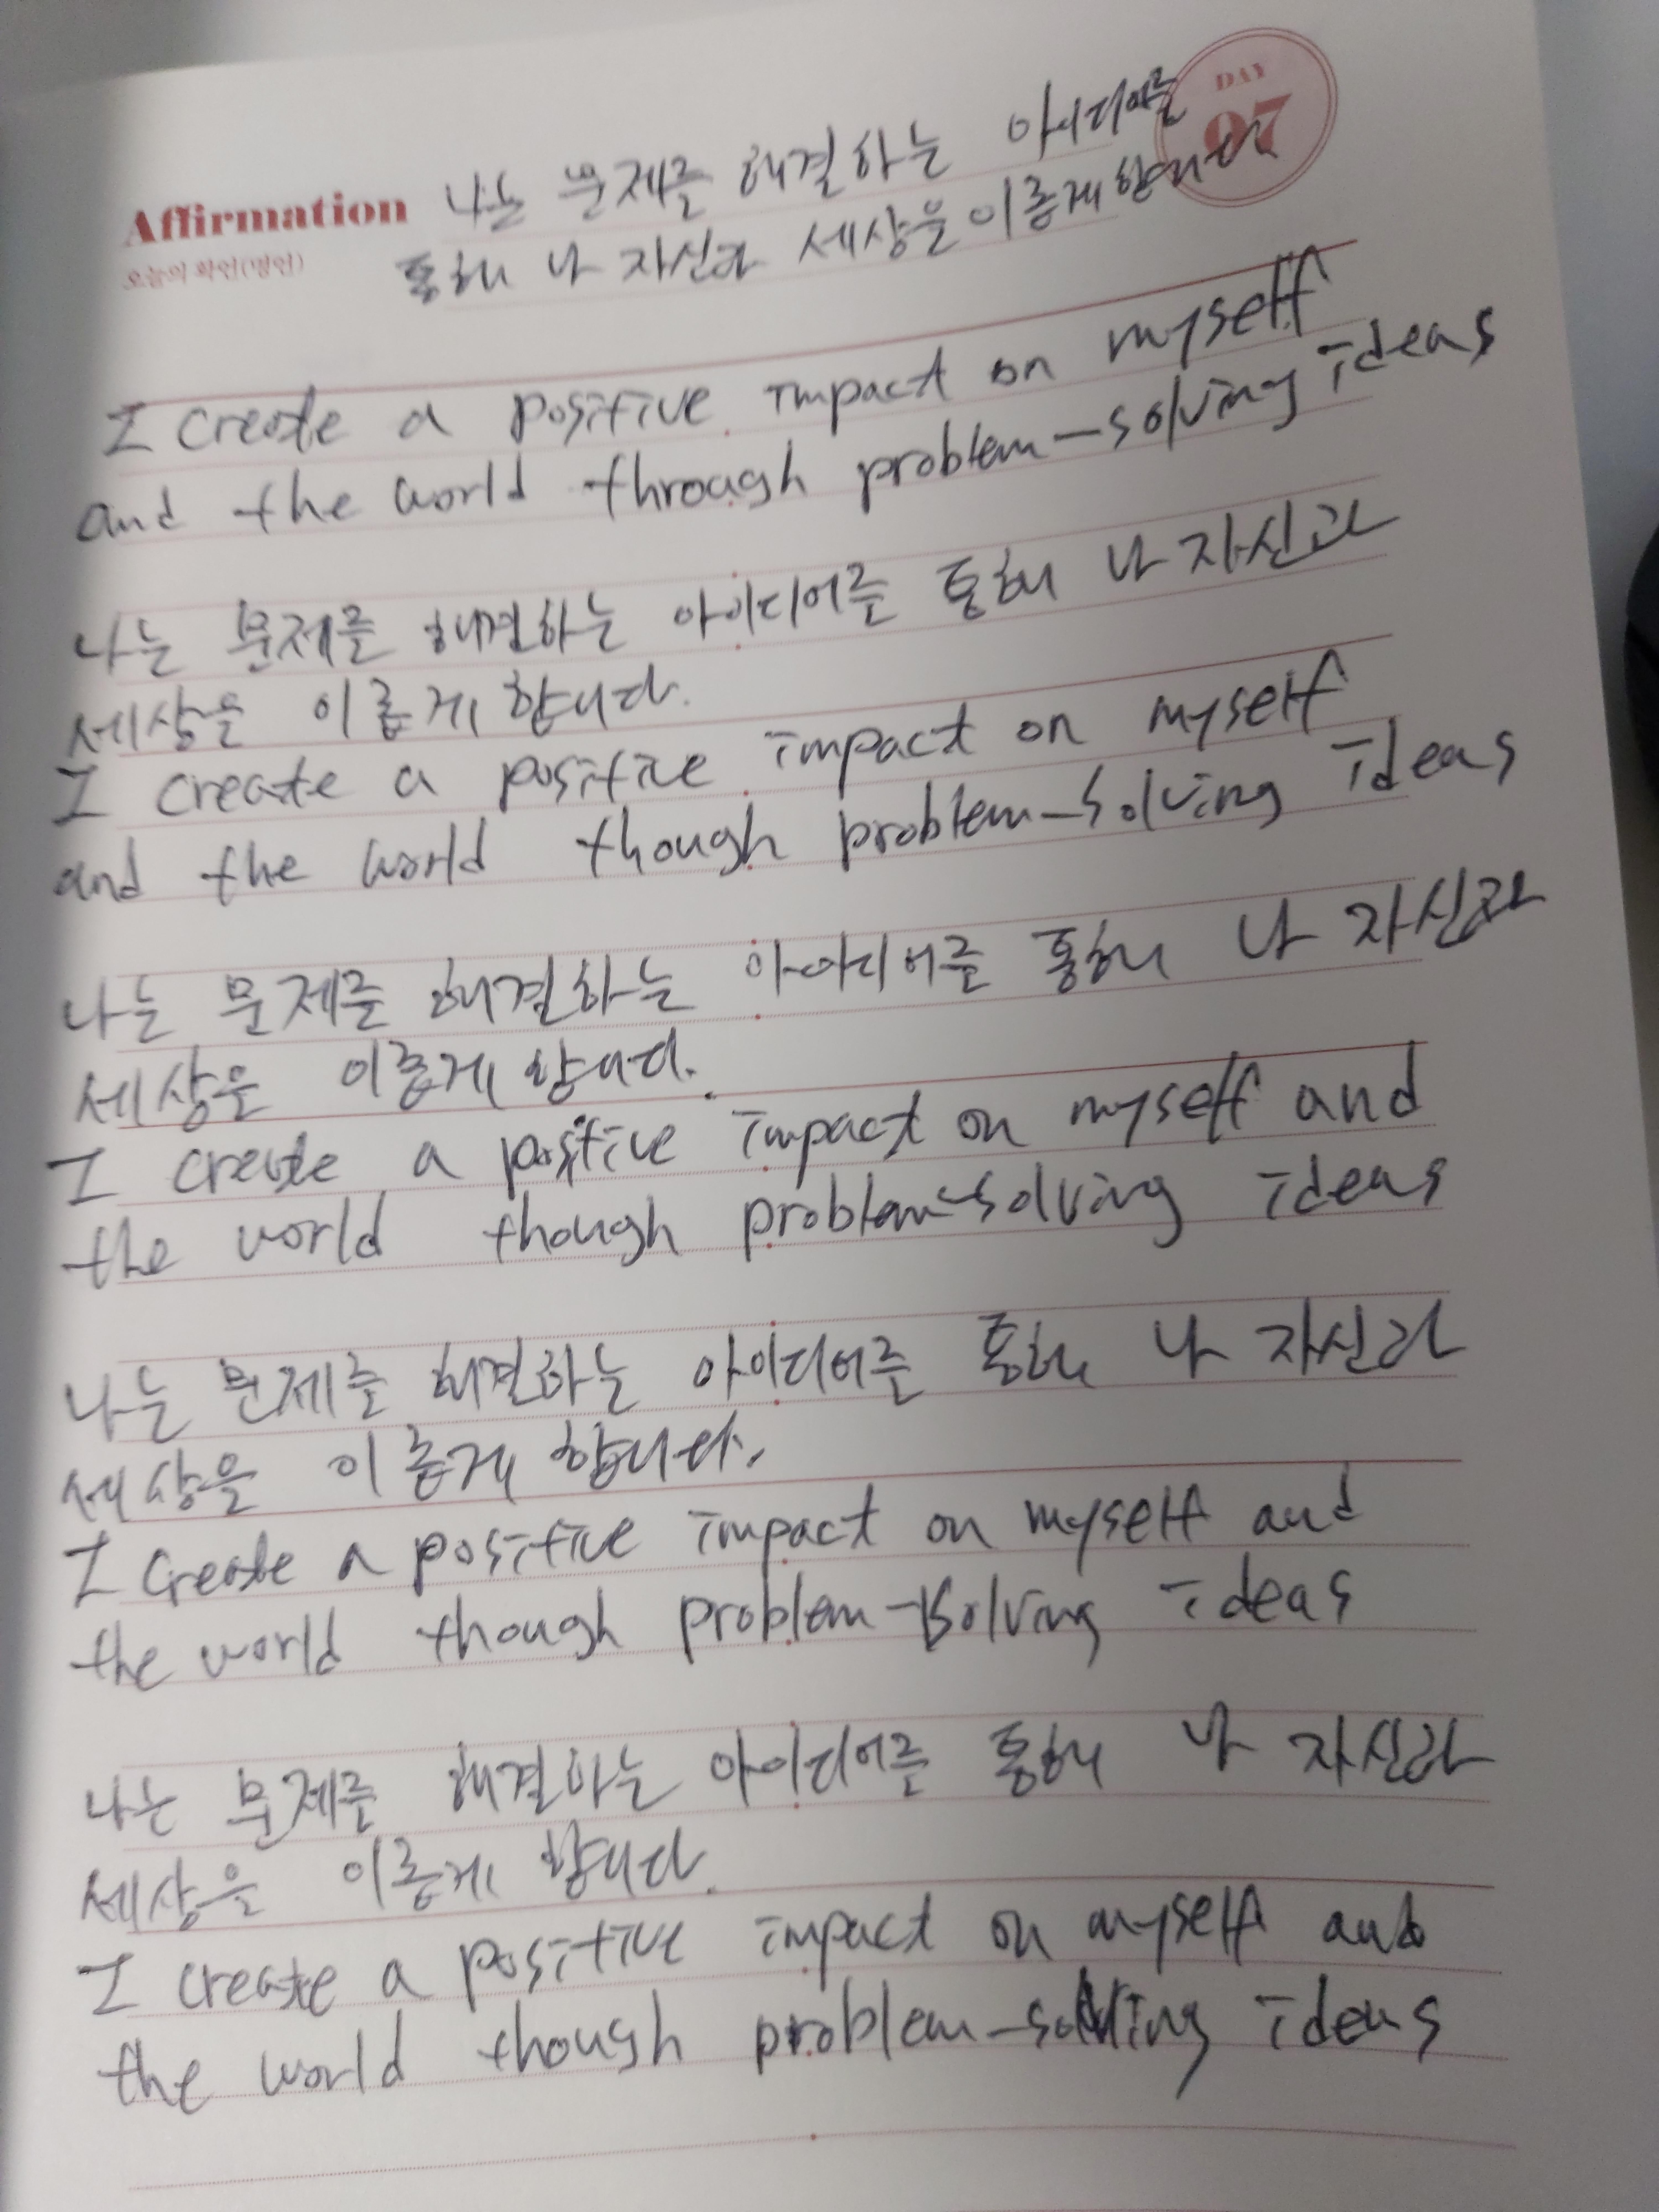 DAY
07
Affirmation 나는 문제를 해결하는 아이디어를
오늘의 확언(명언) 통해 나 자신과 세상을 이롭게 합니다
I create a positive impact on myself
and the world through problem-solving ideas
나는 문제를 해결하는 아이디어를 통해 나 자신과
세상을 이롭게 합니다.
I create a positive impact on myself
and the world though problem-solving ideas
나는 문제를 해결하는 아이디어를 통해 나 자신과
세상을 이롭게 합니다.
I create a positive impact on myself and
the world though problem-solving ideas
나는 문제를 해결하는 아이디어를 통해 나 자신과
세상을 이롭게 합니다.
I create a positive impact on myself and
the world though problem-solving ideas
나는 문제를 해결하는 아이디어를 통해 나 자신과
세상을 이롭게 합니다.
I create a positive impact on myself and
the world though problem-solving ideas